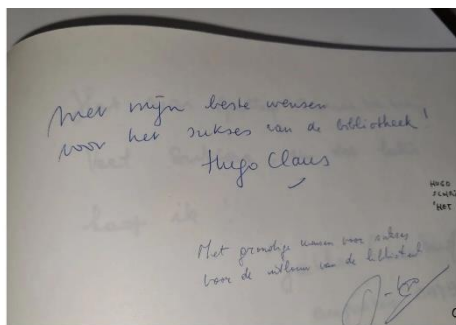 met mijn beste wensen
voor het sukses van de bibliotheek!
Hugo Claus
HUGO
'HET
Met grondige wensen voor sukses
voor de van de bibliotheek